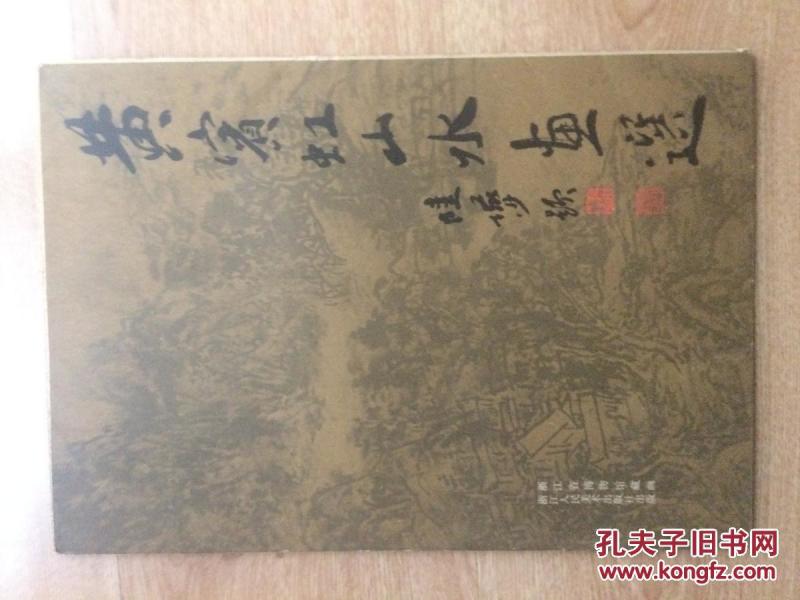 黄宾虹山水画选
陆俨少题
浙江省博物馆藏画
浙江人民美术出版社出版
孔夫子旧书网
www.kongfz.com